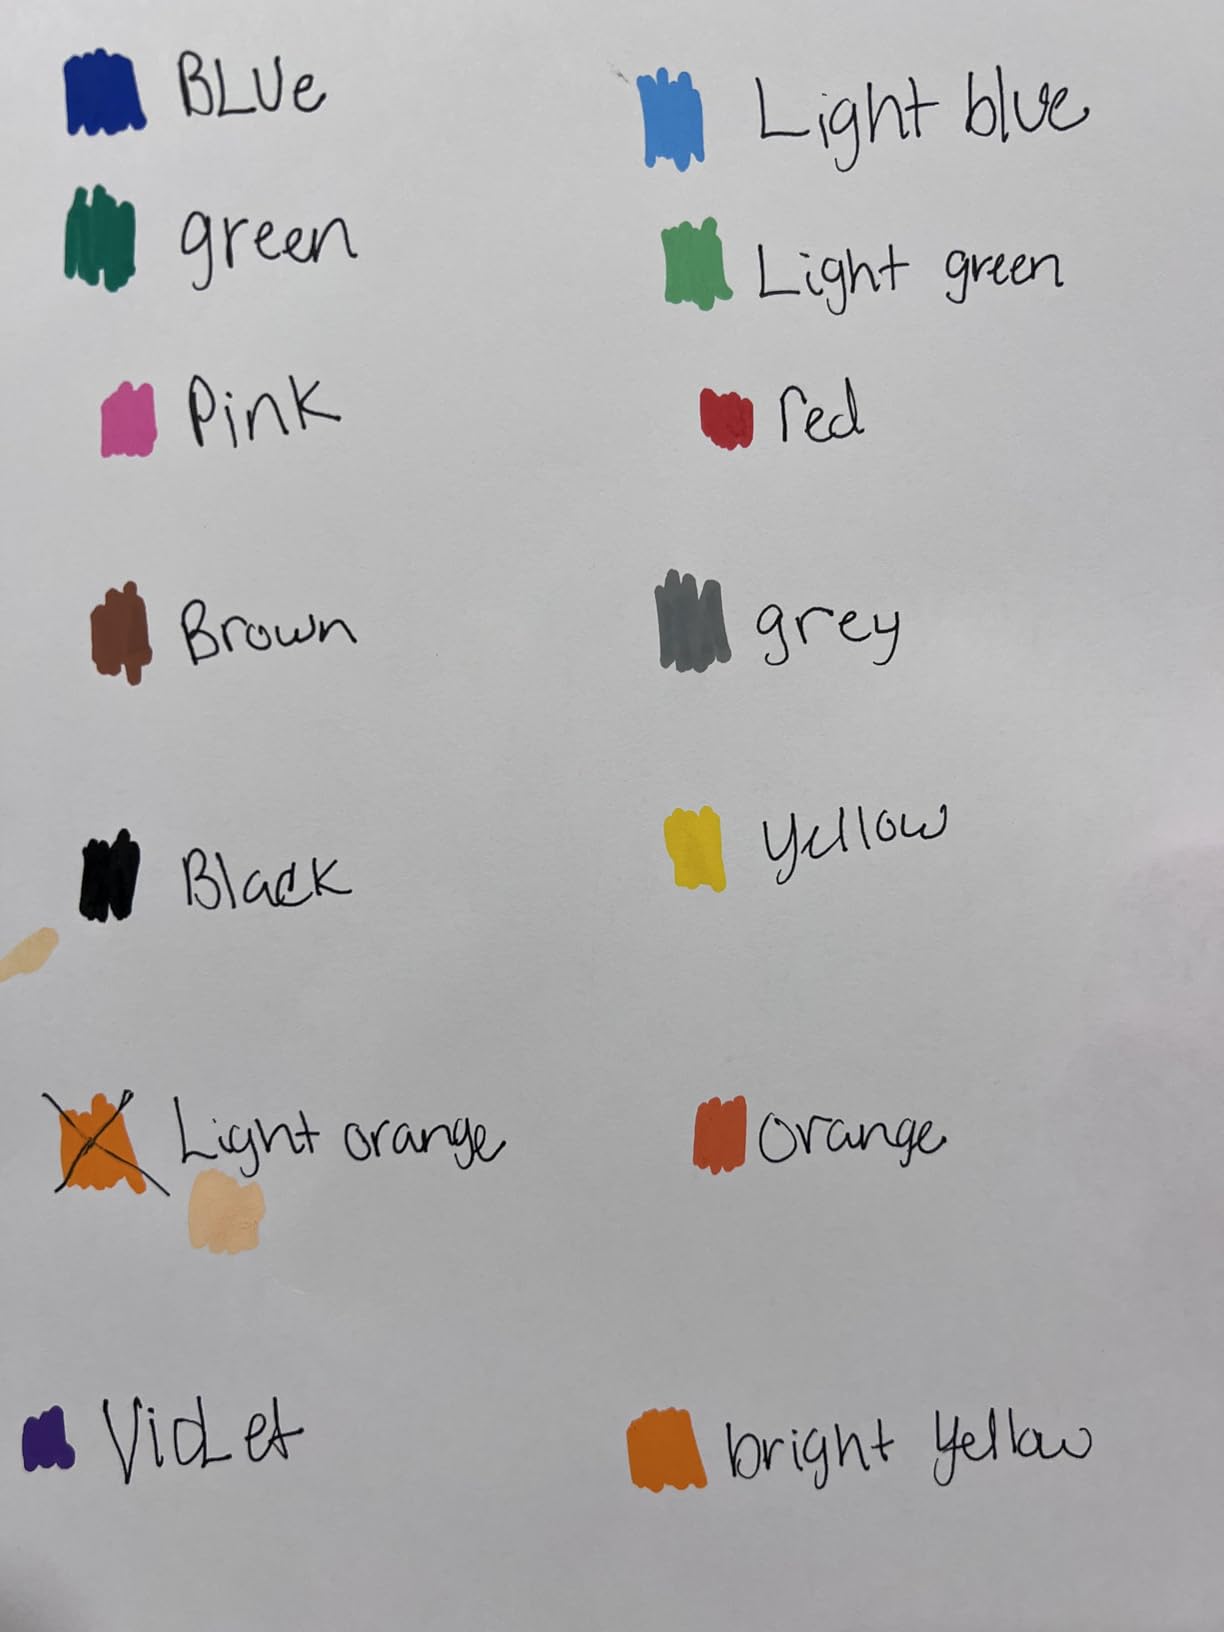 BLUe
Light blue
green
Light green
Pink
red
Brown
grey
Black
yellow
Light orange
orange
VioLet
bright yellow